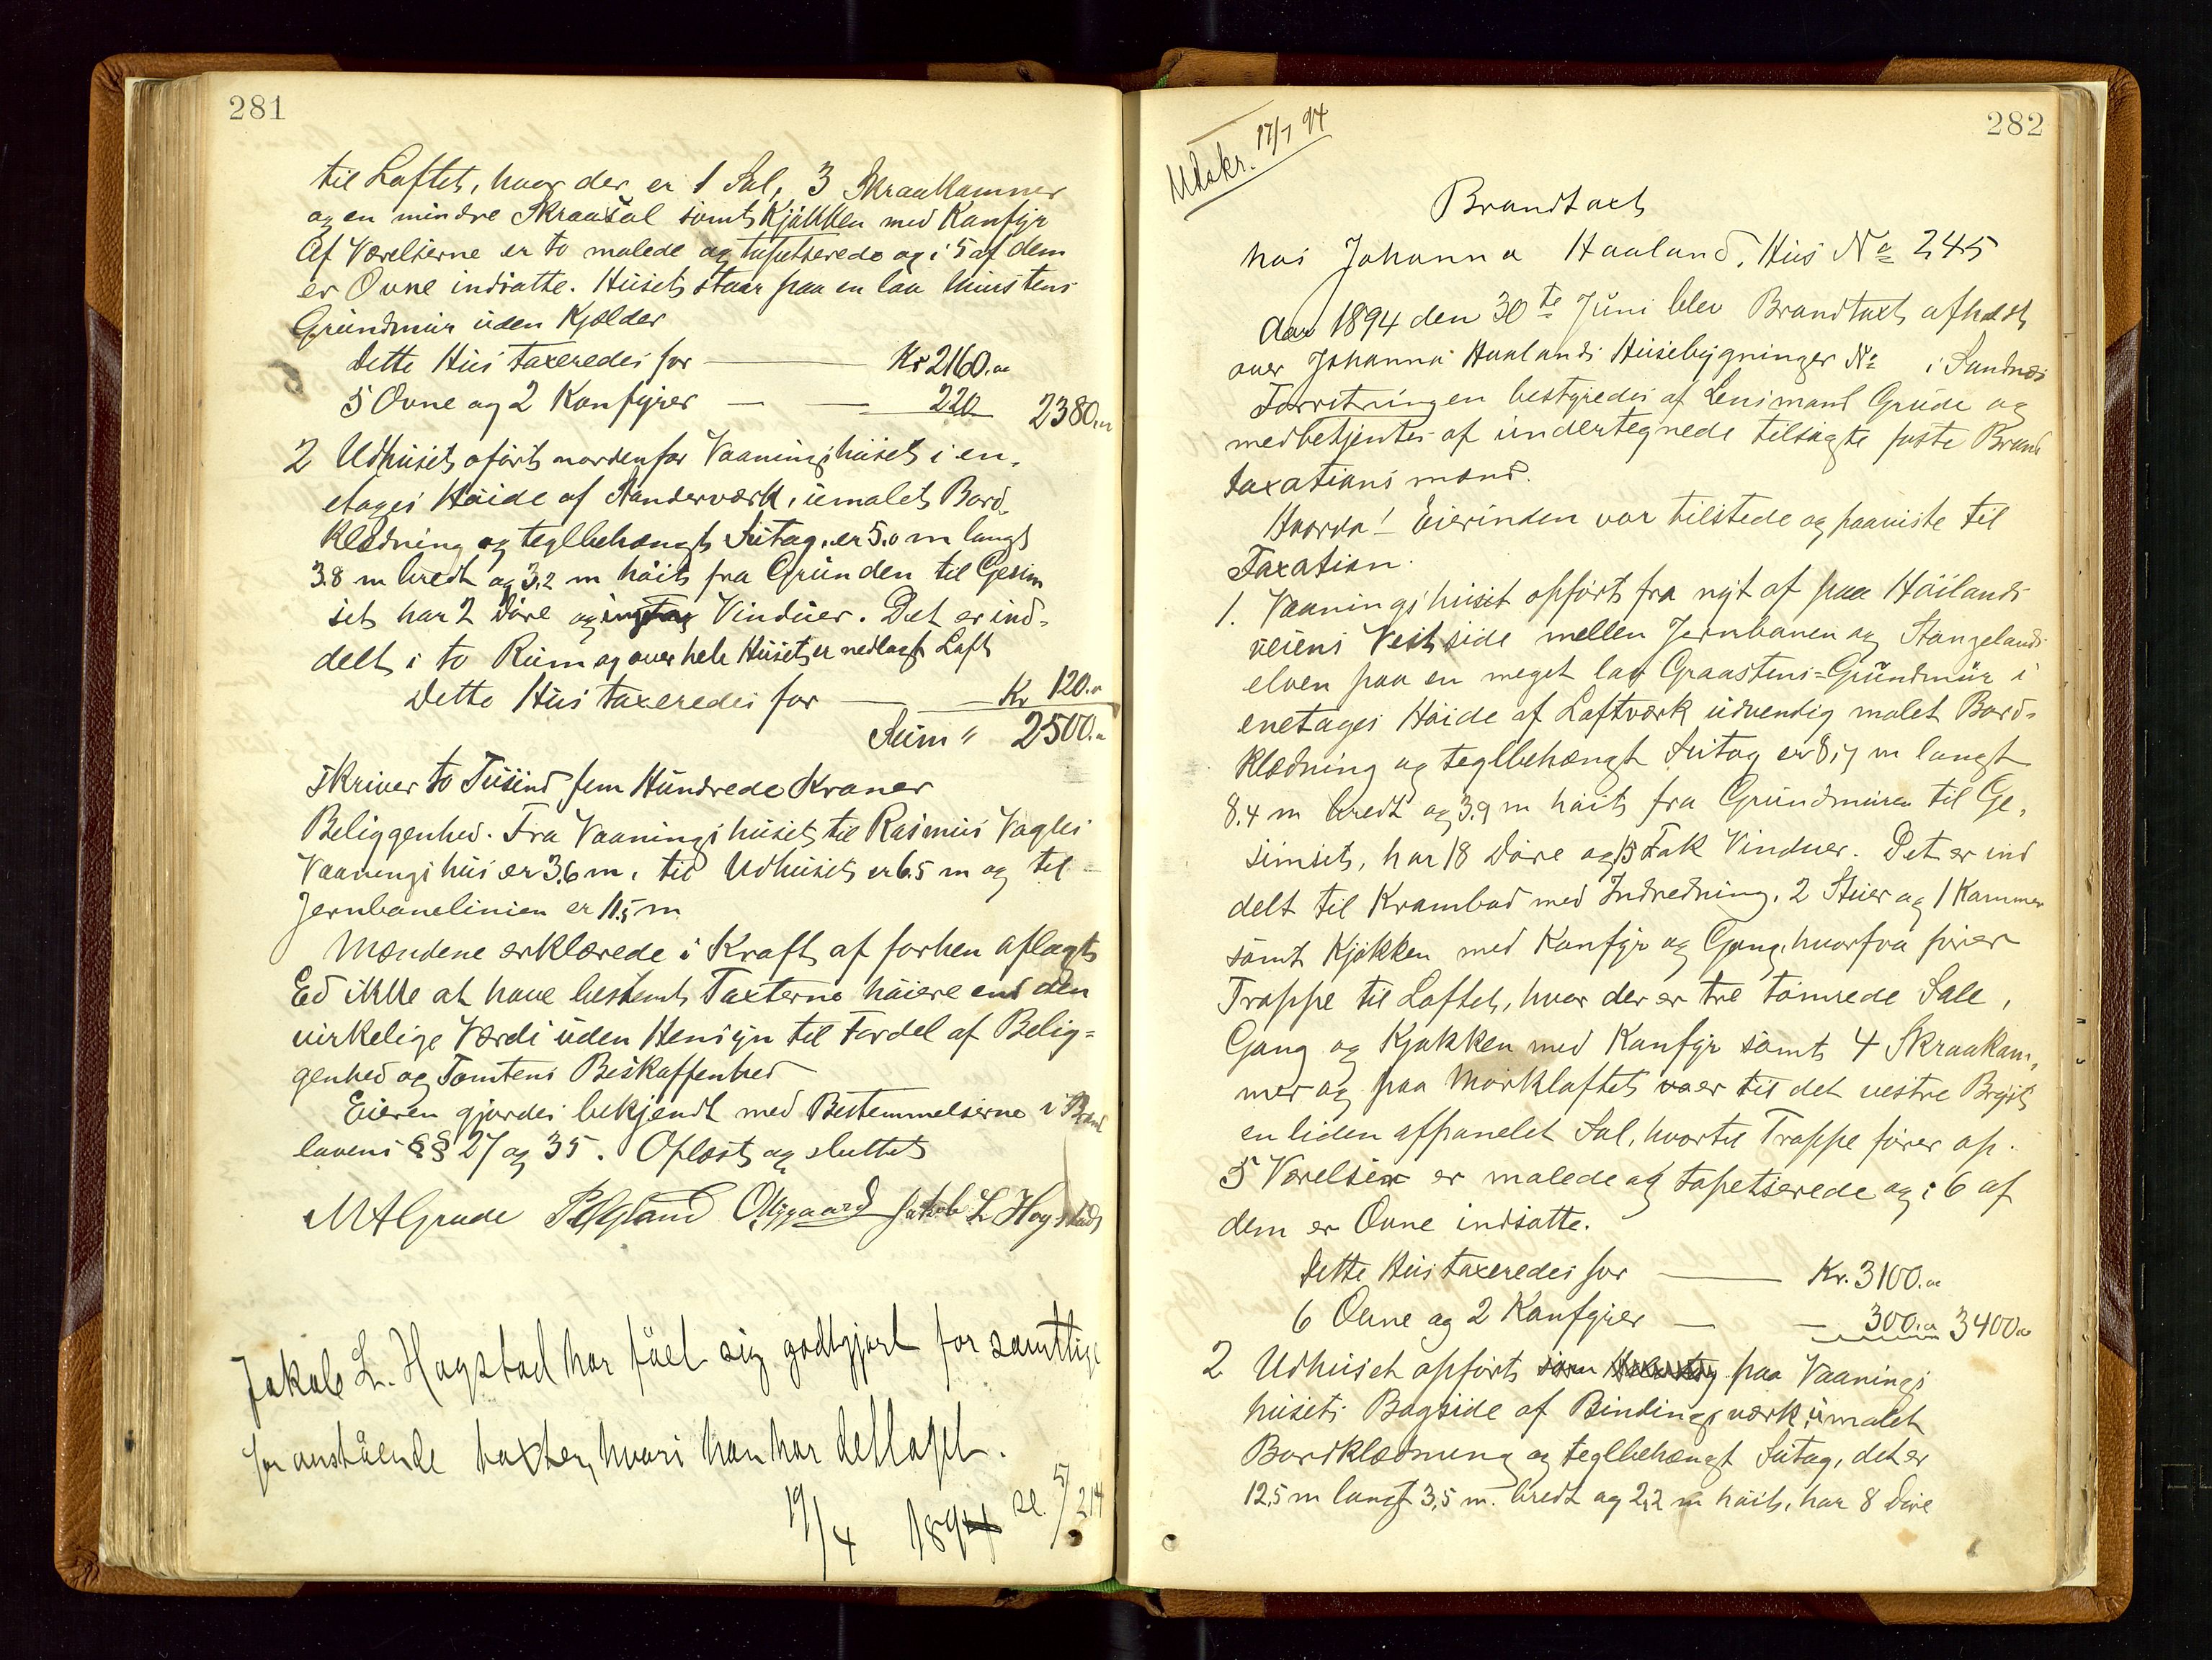 281
til Loftet, hvor der er 1 Sal, 3 Skraakammer
og en mindre Skraasal samt Kjøkken med Komfyr
Af Værelserne er to malede og tapetserede og i 5 af dem
er Ovne indsatte. Huset staar paa en lav
Grundmur uden Kjælder
Dette Hus taxeredes for — Kr 2160.00
5 Ovne og 2 Komfyrer — — 220 2380.00
2 Udhuset opført nordenfor Vaaningshuset i en,
etages Høide af Standerværk, umalet Bord,
klædning og teglbehængt Sutag, er 5.0 m langt
3.8 m bredt og 3,2 m høit fra Grunden til Gesim
set har 2 Døre og Vinduer. Det er ind-
delt i to Rum og over hele Huset er nedlagt Loft
Dette Hus taxeredes for — Kr 120.00
Sum " 2500.00
skriver to Tusind fem Hundrede Kroner
Beliggenhed. Fra Vaaningshuset til Rasmus Vagles
Vaaningshus er 3,6 m, til Udhuset er 6.5 m og til
Jernbanelinien er 11,5 m
Mændene erklærede i Kraft af forhen aflagt
Ed ikke at have bestemt Taxterne høiere end den
virkelige Værdi uden Hensyn til Fordel af Belig=
genhed og Tomtens Beskaffenhed
Eieren gjordes bekjendt med Bestemmelserne i Brand
lovens §§ 27 og 35. Oplæst og sluttet
M A Grude Jakob L Hogstad
Jakob L. Hogstad har fået sig godtgjort for samtlige
foranstående taxter, hvori han har deltaget.
19/4 1894 se 5/214
282
Udskr. 17/7 94
Brandtaxt
hos Johanna Haaland, Hus No 245
Aar 1894 den 30te Juni blev Brandtaxt afholdt
over Johanna Haalands Husebygninger No i Sandnæs
Forretningen bestyredes af Lensmand Grude og
medbetjentes af undertegnede tilsagte faste Brand
taxationsmænd.
Hvorda! Eierinden var tilstede og paaviste til
Taxation.
1. Vaaningshuset opført fra nyt af paa Høilands
veiens Vestside mellem Jernbanen og Stangelands
elven paa en meget lav Graastens=Grundmur i
enetages Høide af Loftværk udvendig malet Bord-
klædning og teglbehængt Sutag er 8,7 m langt
8.4 m bredt og 3.9 m høit fra Grundmuren til Ge,
simset, har 18 Døre og 15 Fak Vinduer. Det er ind
delt til Krambod med Indredning, 2 Stuer og 1 Kammer
samt Kjøkken med Komfyr og Gang, hvorfra fører
Trappe til Loftet, hvor der er tre tømrede Sale,
Gang og Kjøkken med Komfyr samt 4 Skraakam,
mer og paa Mørkloftet er til det vestre Bryst
en liden afpanelet Sal, hvortil Trappe fører op.
5 Værelser er malede og tapetserede og i 6 af
dem er Ovne indsatte.
Dette Hus taxeredes for — Kr. 3100.00
6 Ovne og 2 Komfyrer — — 300.00 3400.00
2 Udhuset opført paa Vaanings
husets Bagside af Bindingsværk, umalet
Bordklædning og teglbehængt Sutag, det er
12,5 m langt 3,5 m. bredt og 2,2 m høit, har 8 Døre